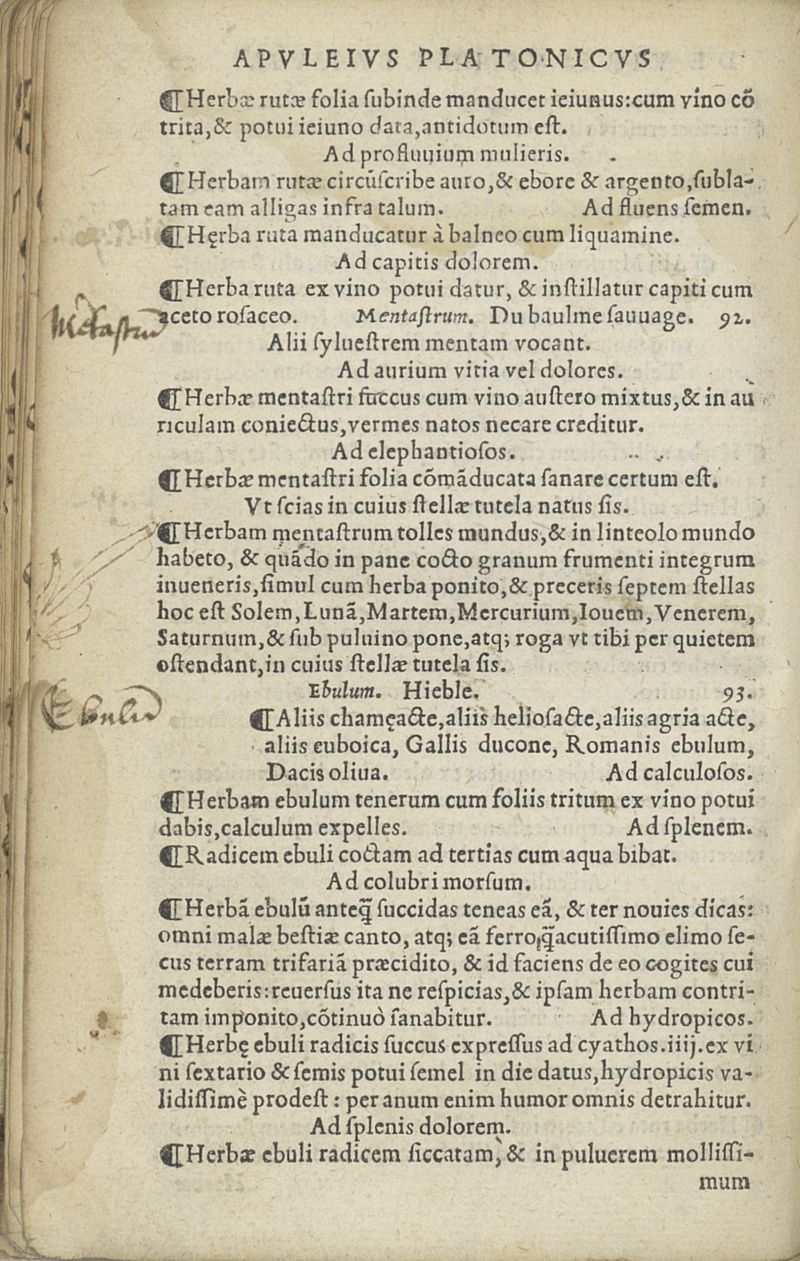 APVLEIVS PLATONICVS
¶Herbæ rutæ folia ſubinde manducet ieiunus:cum vino cõ
trita,& potui ieiuno data,antidotum eſt.
Ad profluuium mulieris.
¶Herbam rutæ circũſcribe auro,& ebore & argento,ſubla-
tam eam alligas infra talum. Ad fluens ſemen.
¶Hęrba ruta manducatur à balneo cum liquamine.
Ad capitis dolorem.
¶Herba ruta ex vino potui datur, & inſtillatur capiti cum
aceto roſaceo. Mentaſtrum. Du baulme ſauuage. 92.
Mētaſtrū
Alii ſylueſtrem mentam vocant.
Ad aurium vitia vel dolores.
¶Herbæ mentaſtri ſuccus cum vino auſtero mixtus,& in au
riculam coniectus,vermes natos necare creditur.
Ad elephantioſos.
¶Herbæ mentaſtri folia cõmãducata ſanare certum eſt.
Vt ſcias in cuius ſtellæ tutela natus ſis.
¶Herbam mentaſtrum tolles mundus,& in linteolo mundo
habeto, & quãdo in pane cocto granum frumenti integrum
inueneris,ſimul cum herba ponito,& preceris ſeptem ſtellas
hoc eſt Solem,Lunã,Martem,Mercurium,Iouem,Venerem,
Saturnum,& ſub puluino pone,atq; roga vt tibi per quietem
oſtendant,in cuius ſtellæ tutela ſis.
Ebulum. Hieble. 93.
Ebulū
¶Aliis chamęacte,aliis helioſacte,aliis agria acte,
aliis euboica, Gallis ducone, Romanis ebulum,
Dacis oliua. Ad calculoſos.
¶Herbam ebulum tenerum cum foliis tritum ex vino potui
dabis,calculum expelles. Ad ſplenem.
¶Radicem ebuli coctam ad tertias cum aqua bibat.
Ad colubri morſum.
¶Herbã ebulũ anteq̃ ſuccidas teneas eã, & ter nouies dicas:
omni malæ beſtiæ canto, atq; eã ferro q̃acutiſſimo elimo ſe-
cus terram trifariã præcidito, & id faciens de eo cogites cui
medeberis:reuerſus ita ne reſpicias,& ipſam herbam contri-
tam imponito,cõtinuò ſanabitur. Ad hydropicos.
¶Herbę ebuli radicis ſuccus expreſſus ad cyathos.iiij.ex vi
ni ſextario & ſemis potui ſemel in die datus,hydropicis va-
lidiſſimè prodeſt : per anum enim humor omnis detrahitur.
Ad ſplenis dolorem.
¶Herbæ ebuli radicem ſiccatam, & in puluerem molliſſi-
mum